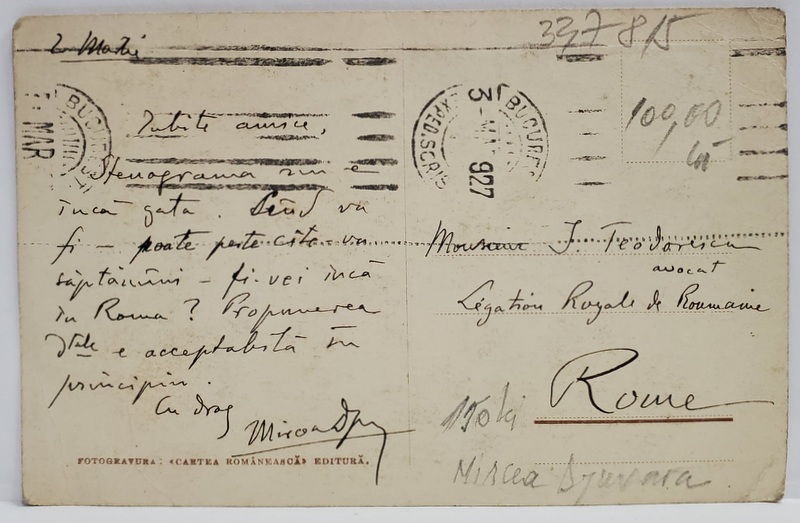 2 Martie
Iubite amice,
Stenograma nu e
încă gata. Când va
fi – poate peste câte-va
săptămâni – fi-vei încă
în Roma? Propunerea
Dtale e acceptabilă în
principiu.
Cu drag
Mircea Djuvara
FOTOGRAVURA: «CARTEA ROMÂNEASCĂ» EDITURĂ.
BUCUREȘTI
MAR
EXPED. SCRIS
BUCUREȘTI
3 927
337 815
100,00
lei
Monsieur I. Teodorescu
avocat
Légation Royale de Roumanie
Rome
150 lei
Mircea Djuvara